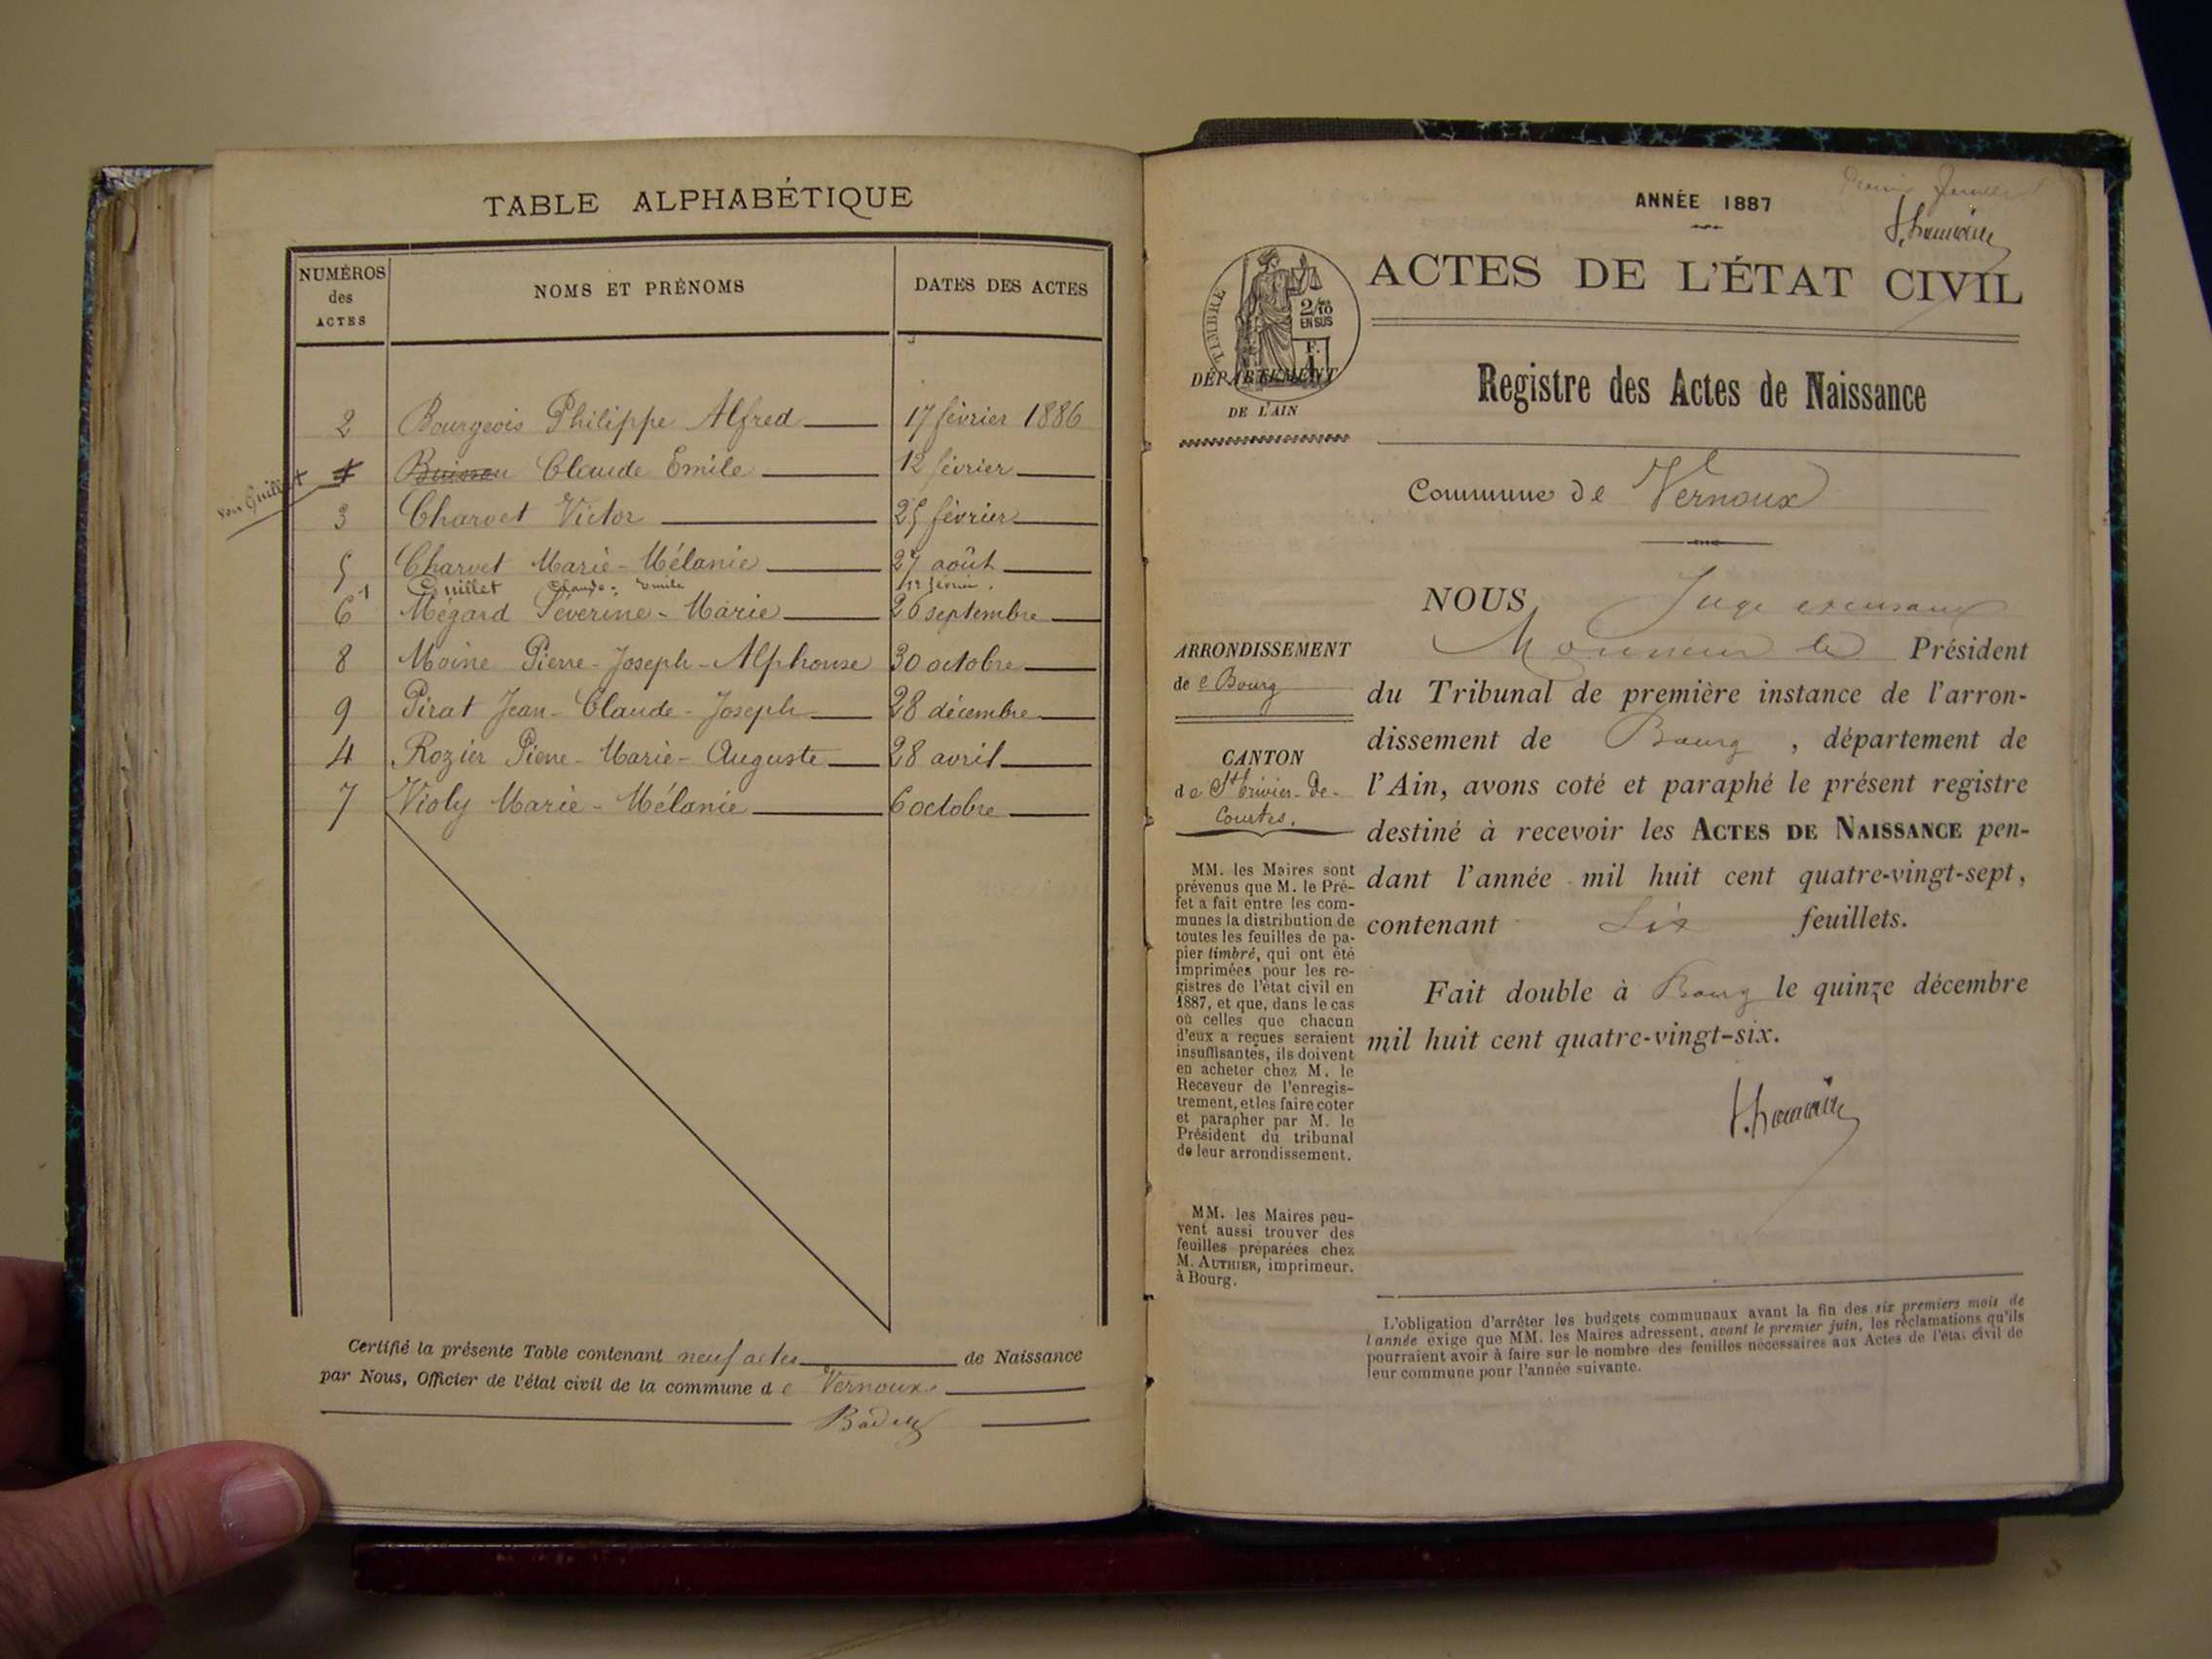 TABLE ALPHABÉTIQUE
NUMÉROS des ACTES
NOMS ET PRÉNOMS
DATES DES ACTES
2 Bourgeois Philippe Alfred 17 février 1886
voir Guillet
1 Buisson Claude Emile 12 février
3 Charvet Victor 25 février
5 Charvet Marie-Mélanie 27 août
1 Guillet Claude-Emile 12 février.
6 Mégard Séverine-Marie 26 septembre
8 Moine Pierre-Joseph-Alphonse 30 octobre
9 Pirat Jean-Claude-Joseph 28 décembre
4 Rozier Pierre-Marie-Auguste 28 avril
7 Violy Marie-Mélanie 6 octobre
Certifié la présente Table contenant neuf actes de Naissance
par Nous, Officier de l'état civil de la commune de Vernoux
ANNÉE 1887
ACTES DE L'ÉTAT CIVIL
TIMBRE
2/10
EN SUS
F.
DÉPARTEMENT
DE L'AIN
Registre des Actes de Naissance
Commune de Vernoux
ARRONDISSEMENT
de Bourg
CANTON
de St Trivier-de-
Courtes.
MM. les Maires sont
prévenus que M. le Pré-
fet a fait entre les com-
munes la distribution de
toutes les feuilles de pa-
pier timbré, qui ont été
imprimées pour les re-
gistres de l'état civil en
1887, et que, dans le cas
où celles que chacun
d'eux a reçues seraient
insuffisantes, ils doivent
en acheter chez M. le
Receveur de l'enregis-
trement, et les faire coter
et parapher par M. le
Président du tribunal
de leur arrondissement.
MM. les Maires peu-
vent aussi trouver des
feuilles préparées chez
M. AUTHIER, imprimeur.
à Bourg.
NOUS, Juge
Monsieur le Président
du Tribunal de première instance de l'arron-
dissement de Bourg, département de
l'Ain, avons coté et paraphé le présent registre
destiné à recevoir les ACTES DE NAISSANCE pen-
dant l'année mil huit cent quatre-vingt-sept,
contenant Six feuillets.
Fait double à Bourg le quinze décembre
mil huit cent quatre-vingt-six.
L'obligation d'arrêter les budgets communaux avant la fin des six premiers mois de
l'année exige que MM. les Maires adressent, avant le premier juin, les réclamations qu'ils
pourraient avoir à faire sur le nombre des feuilles nécessaires aux Actes de l'état civil de
leur commune pour l'année suivante.